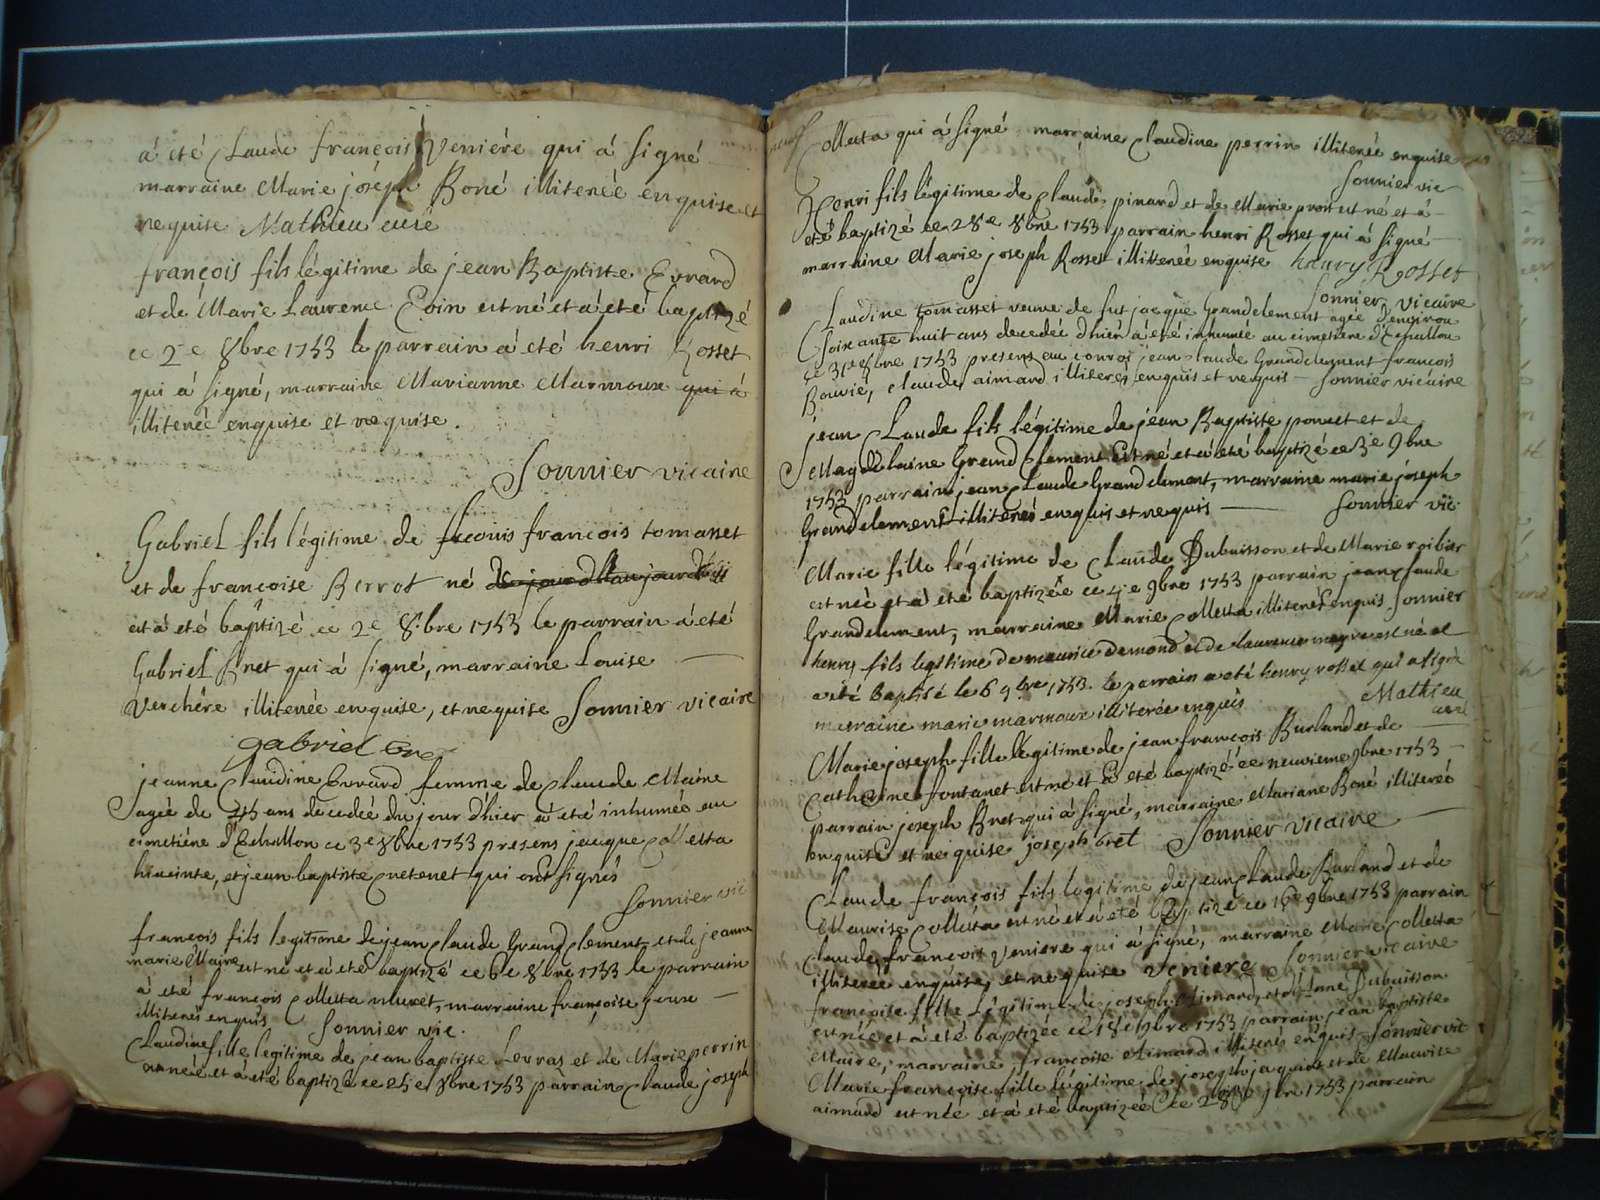 à été Claude françois Veniére qui à signé
marraine Marie joséph Boné illiterée enquise et
requise Mathieu curé
françois fils légitime de jean Baptiste Evrard
et de Marie Laurence Coin est né et à été baptizé
ce 2e 8bre 1753 le parrain à été henri Rosset
qui à signé, marraine Marianne Marmoux qui à
illiterée enquise et requise.
Sonnier vicaire
Gabriel fils légitime de françois tomasset
et de francoise Berrot né
et à été baptizé ce 2e 8bre 1753 le parrain à été
Gabriel Bret qui à signé, marraine Louise
Verchêre illiterée enquise, et requise Sonnier vicaire
gabriel bret
jeanne Claudine Evrard femme de Claude Maire
agée de 45 ans décedée du jour d'hier à été inhumée au
cimetiére d'Echallon ce 3e 8bre 1753 presens jacque Colletta
hiacinte, et jean baptiste qui ont signés
Sonnier vic
françois fils legitime de jean Claude Grand Clement et de jeanne
marie Maire est né et à été baptizé ce 6e 8bre 1753 le parrain
à été françois Colletta muset, marraine françoise
illiterés enquis Sonnier vic.
Claudine fille legitime de jean baptiste Levras et de Marie perrin
est née et à été baptizé ce 25e 8bre 1753 parrain Claude joseph
Colletta qui à signé marraine Claudine perrin illiterée enquise
Sonnier vic
Henri fils légitime de Claude pinard et de Marie pront est né et à
été baptizé ce 28e 8bre 1753 parrain henri Rosset qui à signé
marraine Marie joseph Rosset illiterée enquise henry Rosset
Sonnier vicaire
Claudine tomasset veuve de fut jacque Grandclement agée d'environ
soixante huit ans decedée d'hier à été inhumée au cimetiere d'Echallon
ce 31e 8bre 1753 presens au convoi jean Claude Grandclement francois
Bouvié, claude aimard illiterés enquis et requis Sonnier vicaire
jean Claude fils légitime de jean Baptiste poncet et de
Magdelaine Grand Clement est né et à été baptizé ce 3e 9bre
1753 parrain jean Claude Grandclement, marraine marie joseph
Grandclement illiterés enquis et requis Sonnier vic
Marie fille légitime de Claude Dubuisson et de Marie roibier
est née et à été baptizée ce 4e 9bre 1753 parrain jean Claude
Grandclement, marraine Marie Colletta illiterés enquis Sonnier
henry fils legitime de maurice demond et de laurence est né et
a été baptisé le 6 9bre 1753. le parrain a été henry rosset qui a signé
marraine marie marmoux illiterée enquis Mathieu
curé
Marie joseph fille légitime de jean françois Burland et de
Catherine fontanet est né et à été baptizé ce neuvieme 9bre 1753
parrain joseph Bret qui à signé, marraine Mariane Boné illiterée
enquise et requise joseph bret Sonnier vicaire
Claude françois fils legitime de jean Claude Burland et de
Maurise Colletta est né et à été baptizé ce 16e 9bre 1753 parrain
Claude françois veniere qui à signé, marraine Marie Colletta
illiterée enquise, et requise veniere Sonnier vicaire
françoise fille Légitime de joseph Aimard, et de Dubuisson
est née et à été baptizée ce 18e 9bre 1753 parrain jean baptiste
Maire, marraine françoise Aimard illiterés enquis Sonnier vic
Marie francoise fille légitime de joseph jaquiot et de Maurise
aimard est née et à été baptizée ce 9bre 1753 parrain